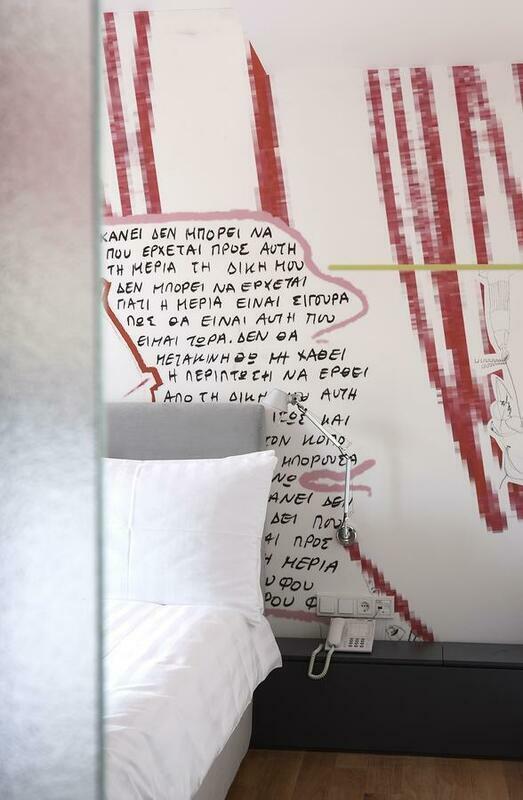 ΚΑΝΕΙ ΔΕΝ ΜΠΟΡΕΙ ΝΑ
ΠΟΥ ΕΡΧΕΤΑΙ ΠΡΟΣ ΑΥΤΗ
ΤΗ ΜΕΡΙΑ ΤΗ ΔΙΚΗ ΜΟΥ
ΔΕΝ ΜΠΟΡΕΙ ΝΑ ΕΡΧΕΤΑΙ
ΓΙΑΤΙ Η ΜΕΡΙΑ ΕΙΝΑΙ ΣΙΓΟΥΡΑ
ΠΩΣ ΘΑ ΕΙΝΑΙ ΑΥΤΗ ΠΟΥ
ΕΙΜΑΙ ΤΩΡΑ. ΔΕΝ ΘΑ
ΜΕΤΑΚΙΝΗΘΩ ΜΗ ΧΑΘΕΙ
Η ΠΕΡΙΠΤΩΣΗ ΝΑ ΕΡΘΕΙ
ΑΠΟ ΤΗ ΔΙΚΗ ΑΥΤΗ
ΚΑΙ
ΤΟΝ ΚΟΠΟ
ΜΠΟΡΟΥΣΑ
ΚΑΝΕΙ ΔΕΝ
ΔΕΙ ΠΟΥ
ΠΡΟΣ
Η ΜΕΡΙΑ